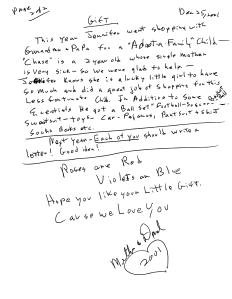 page 2
Dec 25, 2001
GIFT
This year Jennifer went shopping with
Grandma + PaPa for a "Adopt a Family" Child —
"Chase" is a 2 year old whose single mother
is very sick — So we were glad to help —
Jennifer Knows she is a lucky little girl to have
so much and did a great job of shopping for this
Less fortunate Chld. In Addition to some
Essentials He got a Ball Set - Football - Soccer
Sweatsuit - toys - Car - Pajamas, Pant suit + Shirt
Socks Books etc.
Next year - Each of you should write a
letter! Good idea!
Roses are Red
Violets are Blue
Hope you like your Little Gift.
Cause we Love You
Mother + Dad
2001